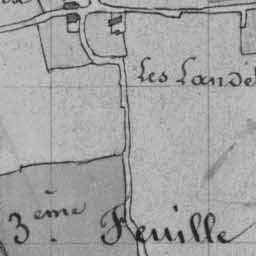 Les Lande
3.ème Feuille